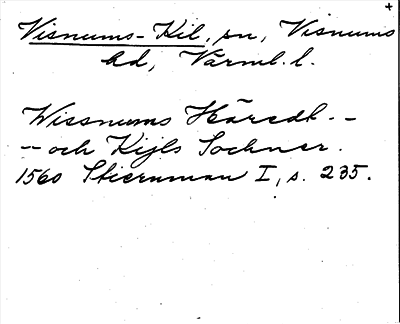 Visnums-Kil, sn, Visnums
hd, Värml. l.
Wissnums Häredh --
-- och Kijls Sochner.
1560 Stiernman I, s. 235.